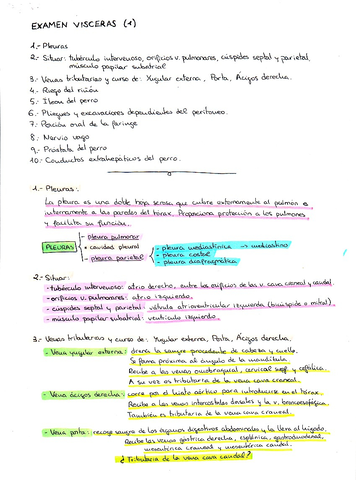 EXAMEN VISCERAS (1)
1.- Pleuras
2.- Situar: tubérculo intervenoso, orificios v. pulmonares, cúspides septal y parietal,
músculo papilar subatrial
3.- Venas tributarias y curso de: Yugular externa, Porta, Ácigos derecha.
4.- Riego del riñón
5.- Ileon del perro
6.- Pliegues y excavaciones dependientes del peritoneo.
7.- Porción oral de la faringe
8.- Nervio vago
9.- Próstata del perro
10.- Conductos extrahepáticos del perro.
1.- Pleuras:
La pleura es una doble hoja serosa que cubre externamente al pulmón e
internamente a las paredes del tórax. Proporciona protección a los pulmones
y facilita su función.
- pleura pulmonar
PLEURAS • cavidad pleural - pleura mediastínica → mediastino
- pleura parietal - pleura costal
- pleura diafragmática
2.- Situar:
- tubérculo intervenoso: atrio derecho, entre los orificios de la v. cava craneal y caudal.
- orificios v. pulmonares: atrio izquierdo.
- cúspides septal y parietal: válvula atrioventricular izquierda (bicúspide o mitral).
- músculo papilar subatrial: ventrículo izquierdo.
3.- Venas tributarias y curso de: Yugular externa, Porta, Ácigos derecha.
- Vena yugular externa: drena la sangre procedente de cabeza y cuello.
Se forma próxima al ángulo de la mandíbula
Recibe a las venas omobraquial, cervical superf. y cefálica.
A su vez es tributaria de la vena cava craneal.
- Vena ácigos derecha: corre por el hiato aórtico para introducirse en el tórax.
Recibe a las venas intercostales dorsales y la v. broncoesofágica.
También es tributaria de la vena cava craneal.
- Vena porta: recoge sangre de los órganos digestivos abdominales y la lleva al hígado.
Recibe las venas gástrica derecha, esplénica, gastroduodenal,
mesentérica craneal y mesentérica caudal.
¿Tributaria de la vena cava caudal?